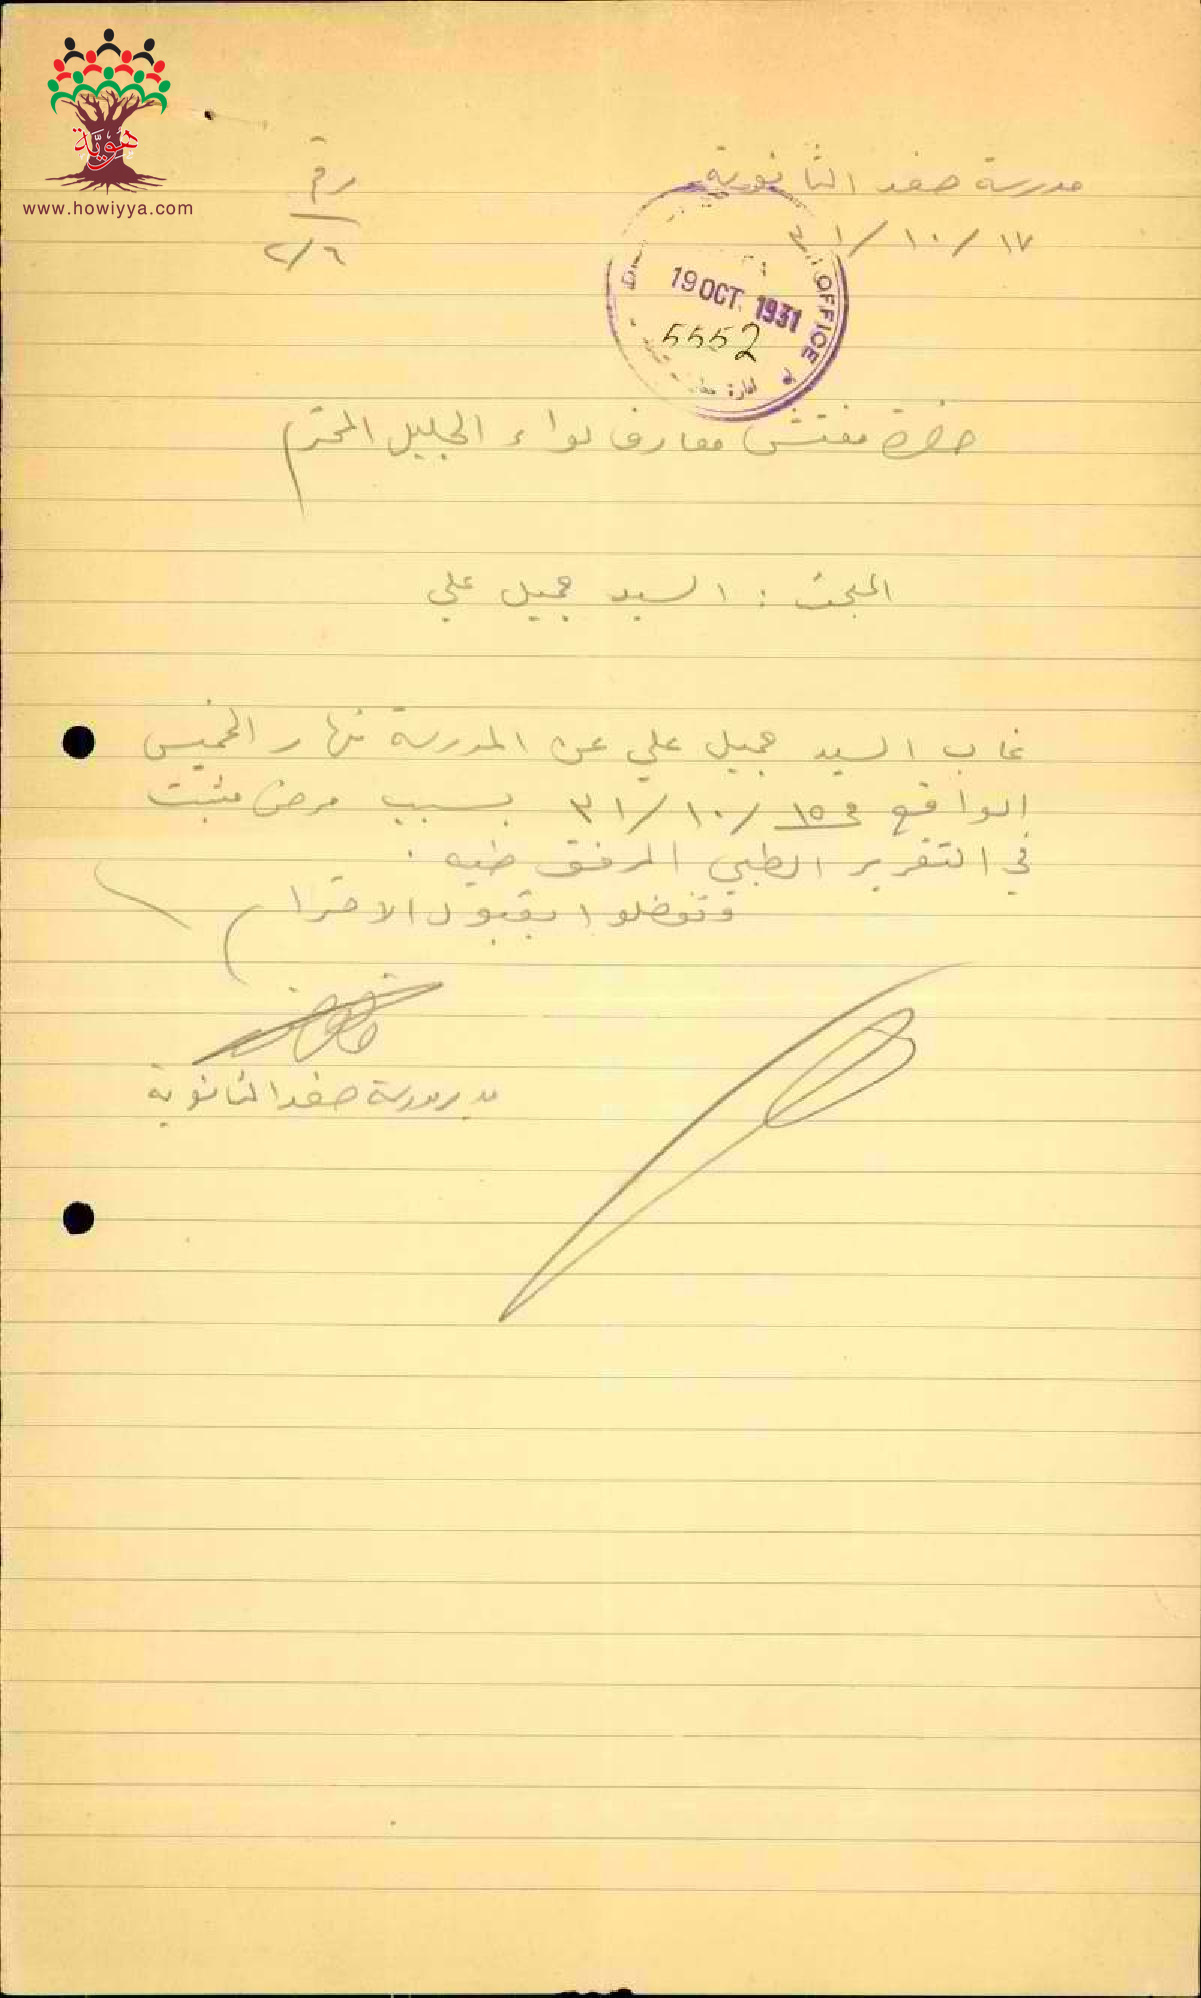 هوية
www.howiyya.com
مدرسة صفد الثانوية
رقم
١٧/١٠/٣١
٢/٦
OFFICE
19 OCT. 1931
5552
ادارة
حضرة مفتش معارف لواء الجليل المحترم
المبحث : السيد جميل علي
غاب السيد جميل علي عن المدرسة نهار الخميس
الواقع في ١٥/١٠/٣١ بسبب مرض مثبت
في التقرير الطبي المرفق طيه .
وتفضلوا بقبول الاحترام
مدير مدرسة صفد الثانوية